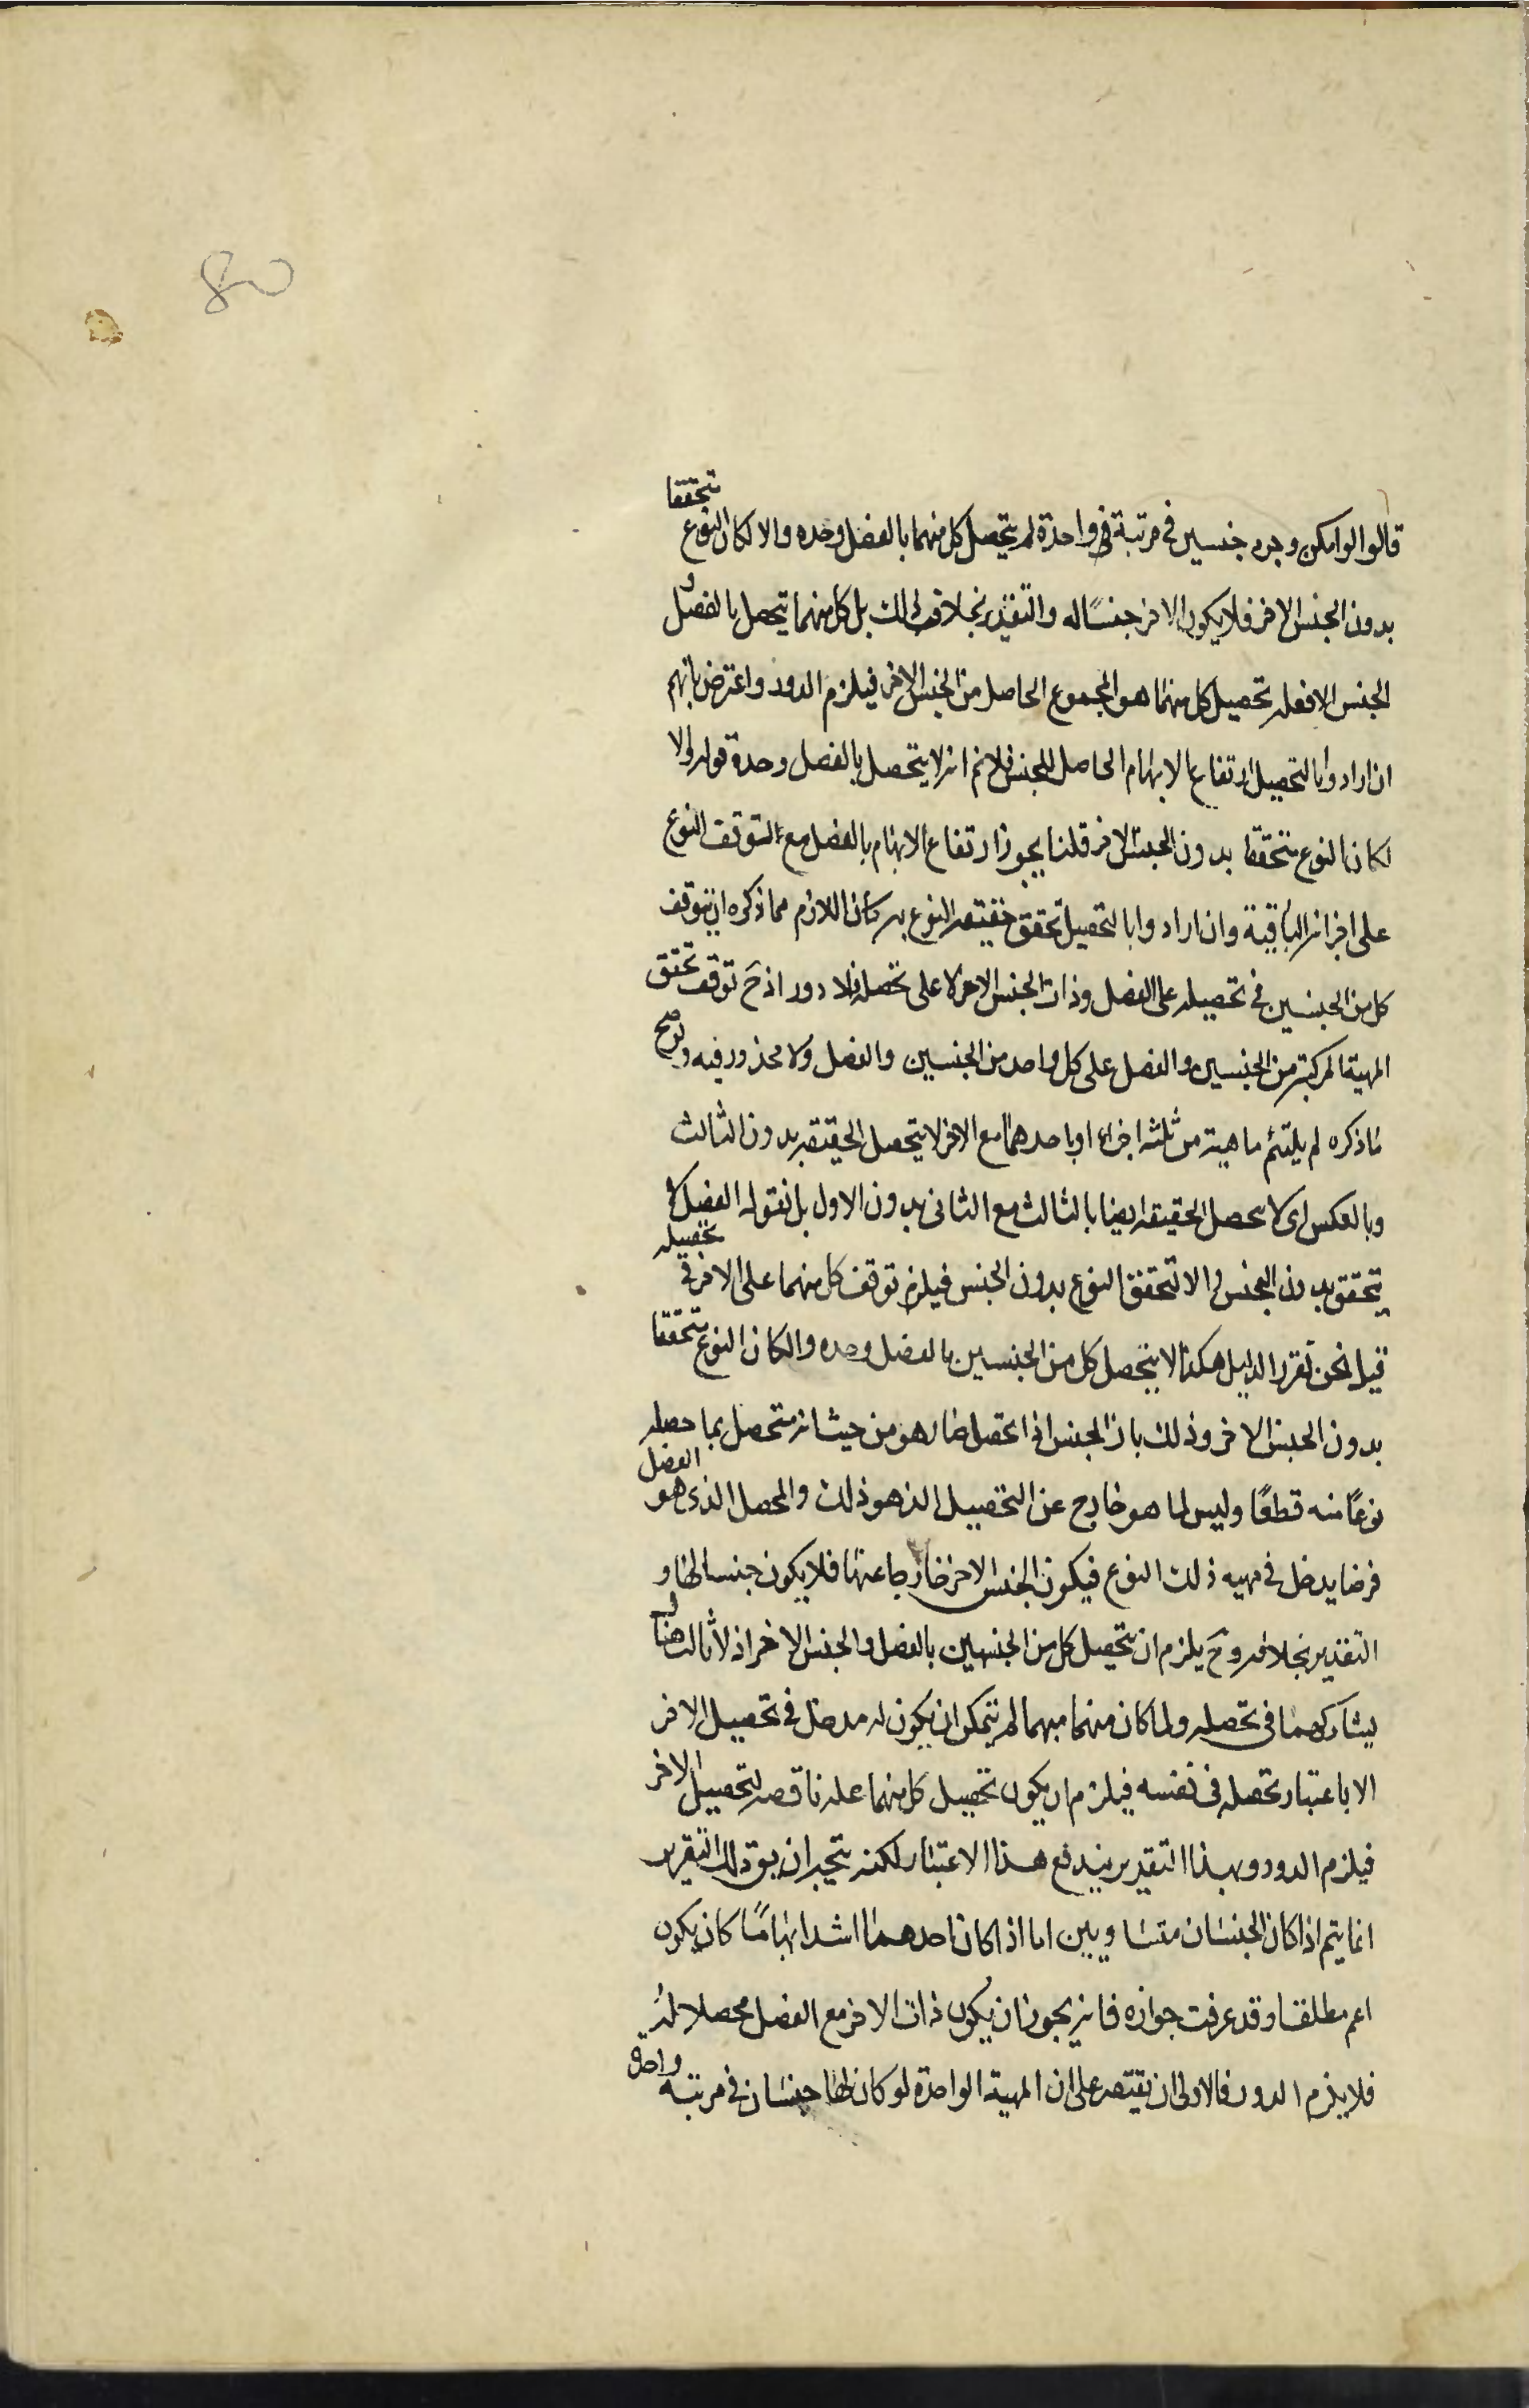 80
قالوا لو امكن وجود جنسين في مرتبة واحدة لم يتحصل كل منهما بالفصل وحده والا لكان النوع متحققا
بدون الجنس الاخر فلا يكون الاخر جنسًا له والتقدير بخلاف ذلك بل كل منهما يتحصل بالفصل و
الجنس الاخر فعلة تحصيل كل منهما هو المجموع الحاصل من الجنس الاخر فيلزم الدور واعترض بانهم
ان ارادوا بالتحصيل ارتفاع الابهام الحاصل للجنس فلانم انه لا يتحصل بالفصل وحدة قوله والا
لكان النوع متحققا بدون الجنس الاخر قلنا يجوز ارتفاع الابهام بالفصل مع التوقف النوع
على اجزائه الباقية وان ارادوا بالتحصيل تحقق حقيقة النوع به كان اللازم مما ذكره ان يتوقف
كل من الجنسين في تحصيله على الفصل وذات الجنس الاخر لا على تحصله فلا دور اذ ح توقف تحقق
المهية المركبة من الجنسين والفصل على كل واحد من الجنسين والفصل ولا محذور فيه ولو صح
ما ذكره لم يلتئم ماهية من ثلثه اجزاء او باحدهما مع الاخر لا يتحصل الحقيقه بدون الثالث
وبالعكس اى لا يتحصل الحقيقه ايضا بالثالث مع الثانى بدون الاول بل نقول الفصل لا
يتحقق بدون الجنس والا لتحقق النوع بدون الجنس فيلزم توقف كل منهما على الاخر في تحصيله
قيل نحن نقرر الدليل هكذا لا يتحصل كل من الجنسين بالفصل وحده والا لكان النوع متحققا
بدون الجنس الاخر وذلك بان الجنس اذا تحصل صار هو من حيث انه متحصل بما حصله
نوعًا منه قطعًا وليس لما هو خارج عن التحصيل الذ هو ذلك والمحصل الذى هو الفصل
فرضا يدخل في مهيه ذلك النوع فيكون الجنس الاخر خارجا عنها فلا يكون جنسا لها و
التقدير بخلافه وح يلزم ان يتحصل كل من الجنسين بالفصل والجنس الاخر اذ لا ثالث هنا
يشاركهما فى تحصله ولما كان منهما مبهما لم يتمكن ان يكون له مدخل في تحصيل الاخر
الا باعتبار تحصله فى نفسه فيلزم ان يكون تحصيل كل منهما علة ناقصه لتحصيل الاخر
فيلزم الدور وبهذا التقدير يندفع هذا الاعتبار لكنه يتجه ان يق ذلك التقرير
انما يتم اذا كان الجنسان متساويين اما اذا كان احدهما اشد ابهامًا كان يكون
اعم مطلقا وقد عرفت جوازه فانه يجوز ان يكون ذات الاخر مع الفصل محصلا له
فلا يلزم الدور فالاولى ان يقتصر على ان المهية الواحدة لو كان لها جنسان في مرتبه واحدة